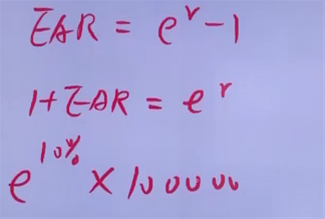 EAR = e^r - 1
1+EAR = e^r
e^10% × 100000